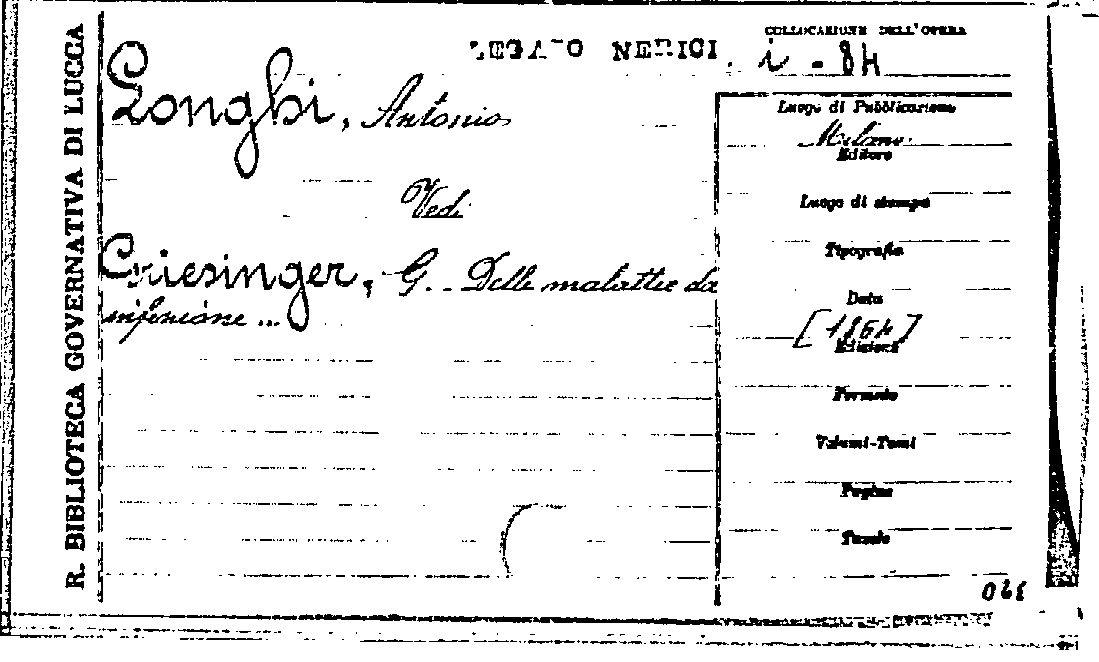 R. BIBLIOTECA GOVERNATIVA DI LUCCA
LEGATO NERICI.
COLLOCAZIONE DELL'OPERA
i - 84
Longhi, Antonio
Vedi
Griesinger, G. - Delle malattie da
infezione ...
Luogo di Pubblicazione
Milano
Editore
Luogo di stampa
Tipografia
Data
[1864]
Edizione
Formato
Volumi-Tomi
Pagine
Tavole